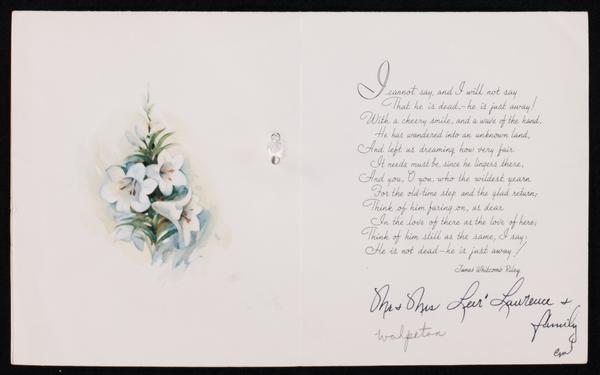 I cannot say, and I will not say
That he is dead,—he is just away!
With a cheery smile, and a wave of the hand,
He has wandered into an unknown land,
And left us dreaming how very fair
It needs must be, since he lingers there,
And you, O you, who the wildest yearn
For the old-time step and the glad return;
Think of him faring on, as dear
In the love of there as the love of here;
Think of him still as the same, I say;
He is not dead—he is just away!
James Whitcomb Riley
Mr & Mrs Lawrence &
family
Wahpeton